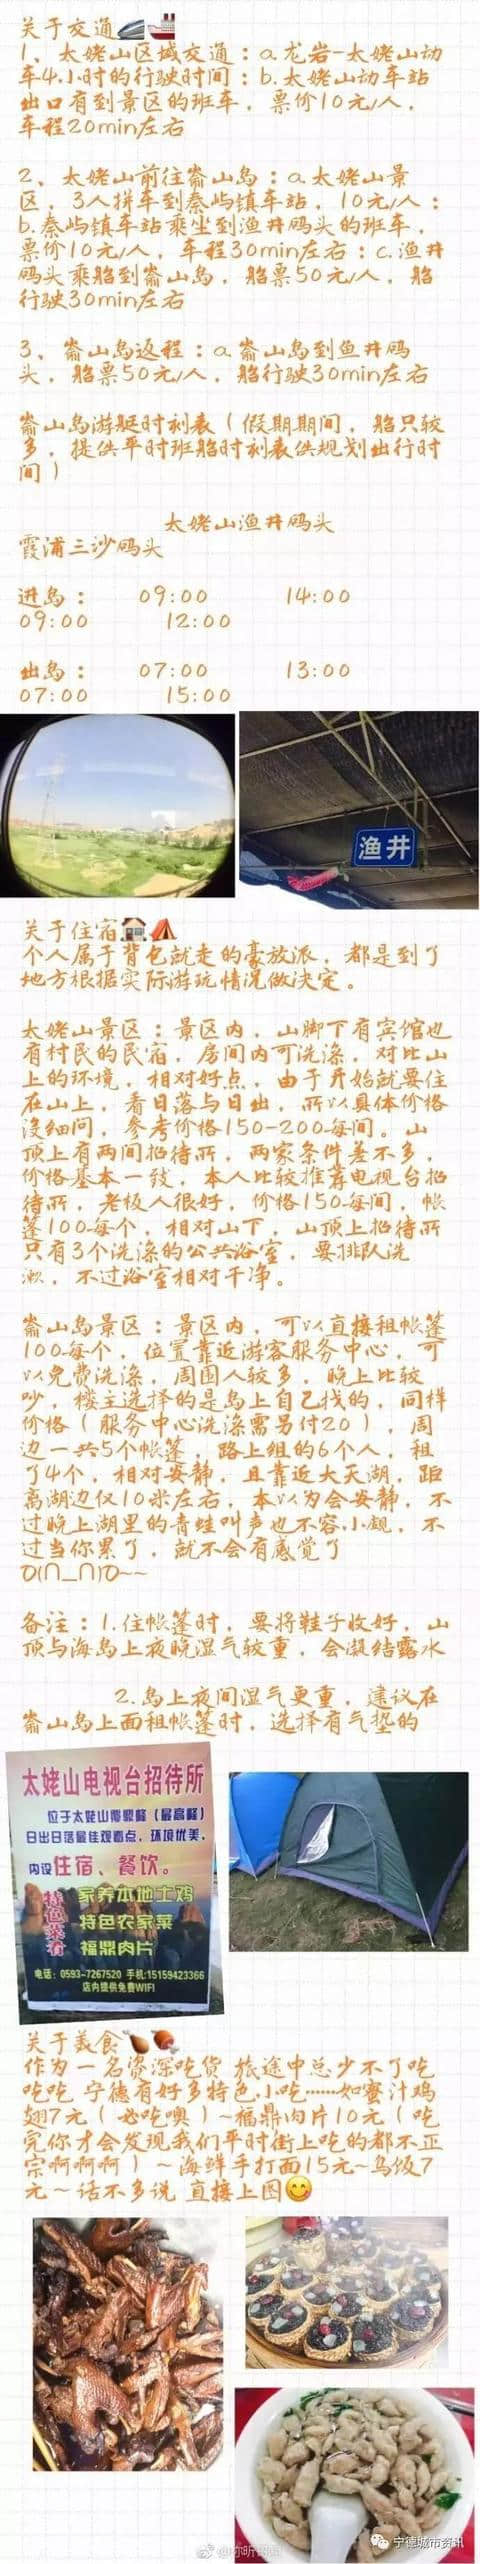 关于交通
1、太姥山区域交通：a.龙岩-太姥山动
车4小时的行驶时间；b.太姥山动车站
出口有到景区的班车，票价10元/人，
车程20min左右
2、太姥山前往嵛山岛：a.太姥山景
区，3人拼车到秦屿镇车站，10元/人；
b.秦屿镇车站乘坐到渔井码头的班车，
票价10元/人，车程30min左右；c.渔井
码头乘船到嵛山岛，船票50元/人，船
行驶30min左右
3、嵛山岛返程：a.嵛山岛到鱼井码
头，船票50元/人，船行驶30min左右
嵛山岛游艇时刻表（假期期间，船只较
多，提供平时班船时刻表供规划出行时
间）
太姥山渔井码头
霞浦三沙码头
进岛： 09:00 14:00
09:00 12:00
出岛： 07:00 13:00
07:00 15:00
渔井
关于住宿
个人属于背包就走的豪放派，都是到了
地方根据实际游玩情况做决定。
太姥山景区：景区内，山脚下有宾馆也
有村民的民宿，房间内可洗涤，对比山
上的环境，相对好点，由于开始就要住
在山上，看日落与日出，所以具体价格
没细问，参考价格150-200每间。山
顶上有两间招待所，两家条件差不多，
价格基本一致，本人比较推荐电视台招
待所，老板人很好，价格150每间，帐
篷100每个，相对山下，山顶上招待所
只有3个洗涤的公共浴室，要排队洗
漱，不过浴室相对干净。
嵛山岛景区：景区内，可以直接租帐篷
100每个，位置靠近游客服务中心，可
以免费洗涤，周围人较多，晚上比较
吵，楼主选择的是岛上自己找的，同样
价格（服务中心洗涤需另付20），周
边一共5个帐篷，路上组的6个人，租
了4个，相对安静，且靠近大天湖，距
离湖边仅10米左右，本以为会安静，不
过晚上湖里的青蛙叫声也不容小觑，不
过当你累了，就不会有感觉了
O(∩_∩)O~~
备注：1.住帐篷时，要将鞋子收好，山
顶与海岛上夜晚湿气较重，会凝结露水
2.岛上夜间湿气更重，建议在
嵛山岛上面租帐篷时，选择有气垫的
太姥山电视台招待所
位于太姥山覆鼎峰（最高峰）
日出日落最佳观看点，环境优美，
内设住宿、餐饮。
特色菜有
家养本地土鸡
特色农家菜
福鼎肉片
电话：0593-7267520 手机：15159423366
店内提供免费WIFI
关于美食
作为一名资深吃货 旅途中总少不了吃
吃吃 宁德有好多特色小吃……如蜜汁鸡
翅7元（必吃噢）~福鼎肉片10元（吃
完你才会发现我们平时街上吃的都不正
宗啊啊啊）~海鲜手打面15元~乌饭7
元~话不多说 直接上图
宁德城市资讯